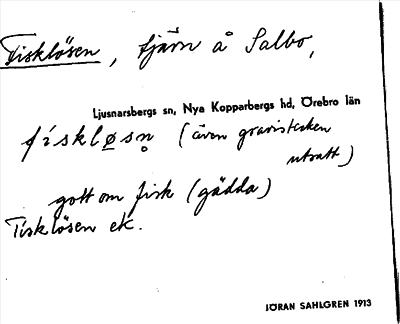 Fisklösen, tjärn å Salbo,
Ljusnarsbergs sn, Nya Kopparbergs hd, Örebro län
fiskløsn̥ (även gravistecken
utsatt)
gott om fisk (gädda)
Fisklösen ek.
JÖRAN SAHLGREN 1913